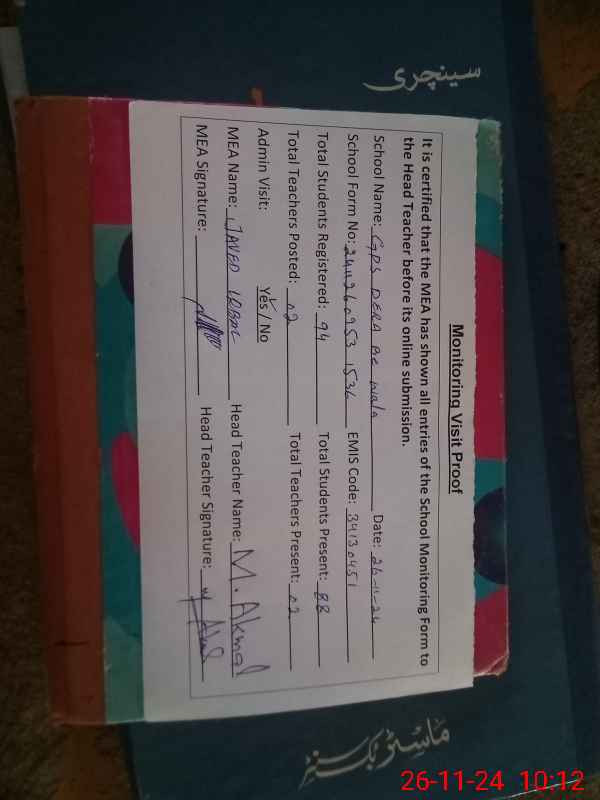 سینچری
Monitoring Visit Proof
It is certified that the MEA has shown all entries of the School Monitoring Form to
the Head Teacher before its online submission.
School Name: GPS DERA Be wala Date: 26-11-24
School Form No: 2411260953 1536 EMIS Code: 34130451
Total Students Registered: 94 Total Students Present: 88
Total Teachers Posted: 02 Total Teachers Present: 02
Admin Visit: Yes / No
MEA Name: JAVED IQBAL Head Teacher Name: M. Akmal
MEA Signature: Head Teacher Signature:
ماسٹر بک سنٹر
26-11-24 10:12